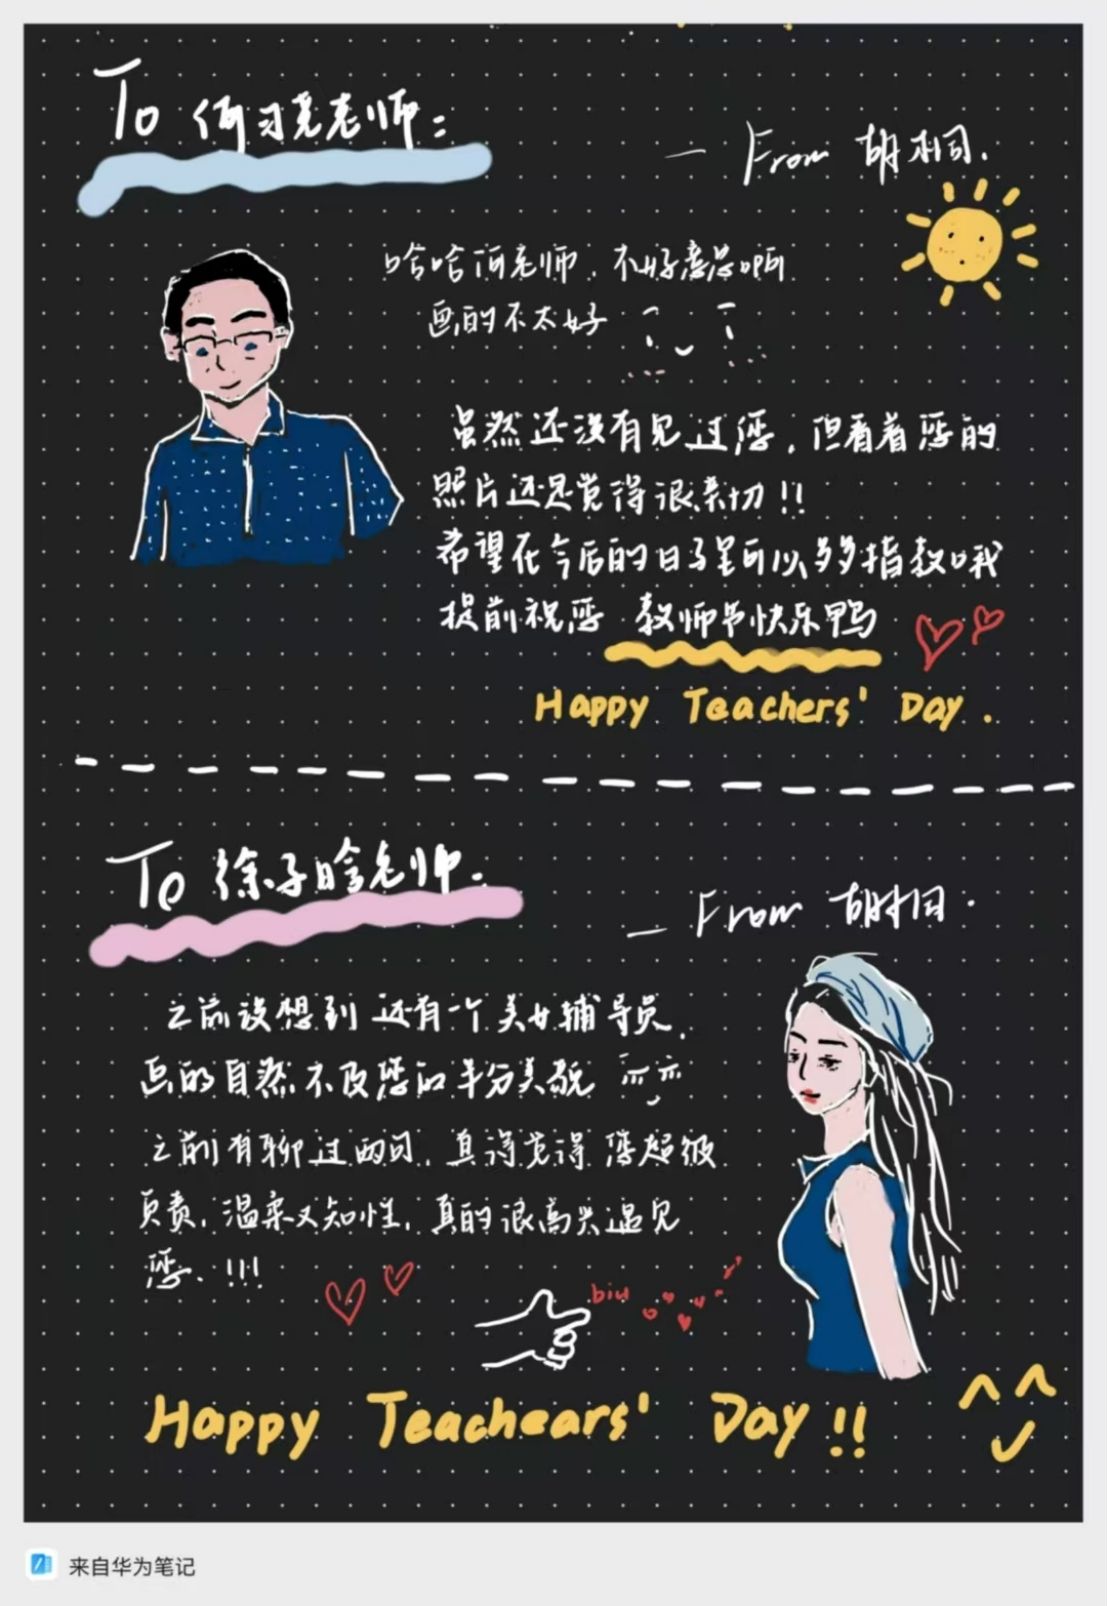 To 何习尧老师：
— From 胡桐.
哈哈何老师，不好意思啊
画的不太好
虽然还没有见过您，但看着您的
照片还是觉得很亲切!!
希望在今后的日子里可以多多指教哦
提前祝您 教师节快乐鸭
Happy Teachers' Day.
To 徐子晗老师：
— From 胡桐.
之前没想到 还有一个美女辅导员，
画的自然不及您的半分美貌
之前有聊过两句，真得觉得 您超级
负责，温柔又知性，真的很高兴遇见
您. !!!
biu
Happy Teachears' Day!!
来自华为笔记